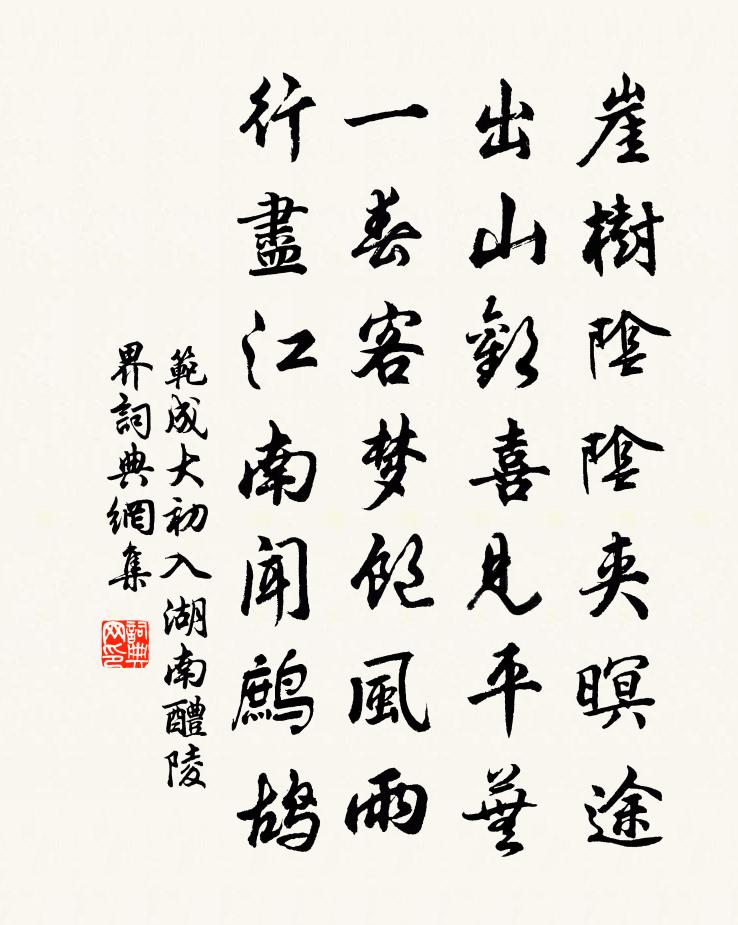 崖樹陰陰夾暝途
出山歡喜見平蕪
一春客梦飽風雨
行盡江南聞鷓鴣
範成大初入湖南醴陵
界詞典網集
詞典
网印